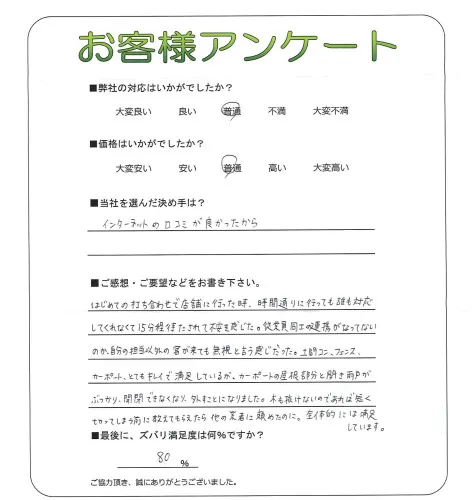 お客様アンケート
■弊社の対応はいかがでしたか?
大変良い 良い 普通 不満 大変不満
■価格はいかがでしたか?
大変安い 安い 普通 高い 大変高い
■当社を選んだ決め手は?
インターネットの口コミが良かったから
■ご感想・ご要望などをお書き下さい。
はじめての打ち合わせで店舗に行った時、時間通りに行っても誰も対応
してくれなくて15分程待たされて不安を感じた。従業員同士の連携がなってない
のか、自分の担当以外の客が来ても無視と言う感じだった。土間コン、フェンス、
カーポート、とてもキレイで満足しているが、カーポートの屋根部分と開き雨戸が
ぶっかり、開閉できなくなり、外すことになりました。木も抜けないのであれば短く
切ってしまう前に教えてもらえたら他の業者に頼めたのに。全体的には満足
しています。
■最後に、ズバリ満足度は何%ですか?
80 %
ご協力頂き、誠にありがとうございました。